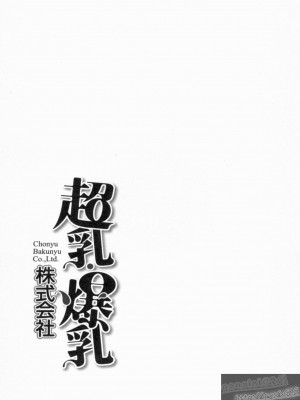 超乳・爆乳
Chonyu
Bakunyu
Co.,Ltd.
株式会社